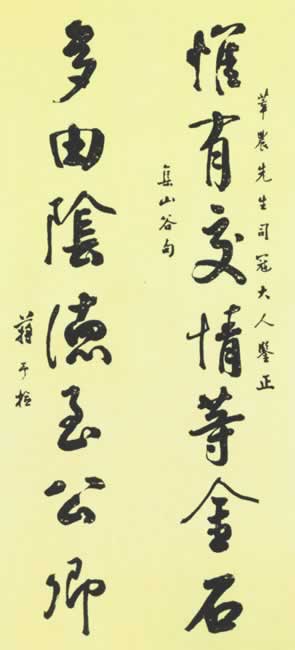 莘農先生司寇大人鑒正
惟有交情等金石
集山谷句
多由陰德至公卿
蔣予檢